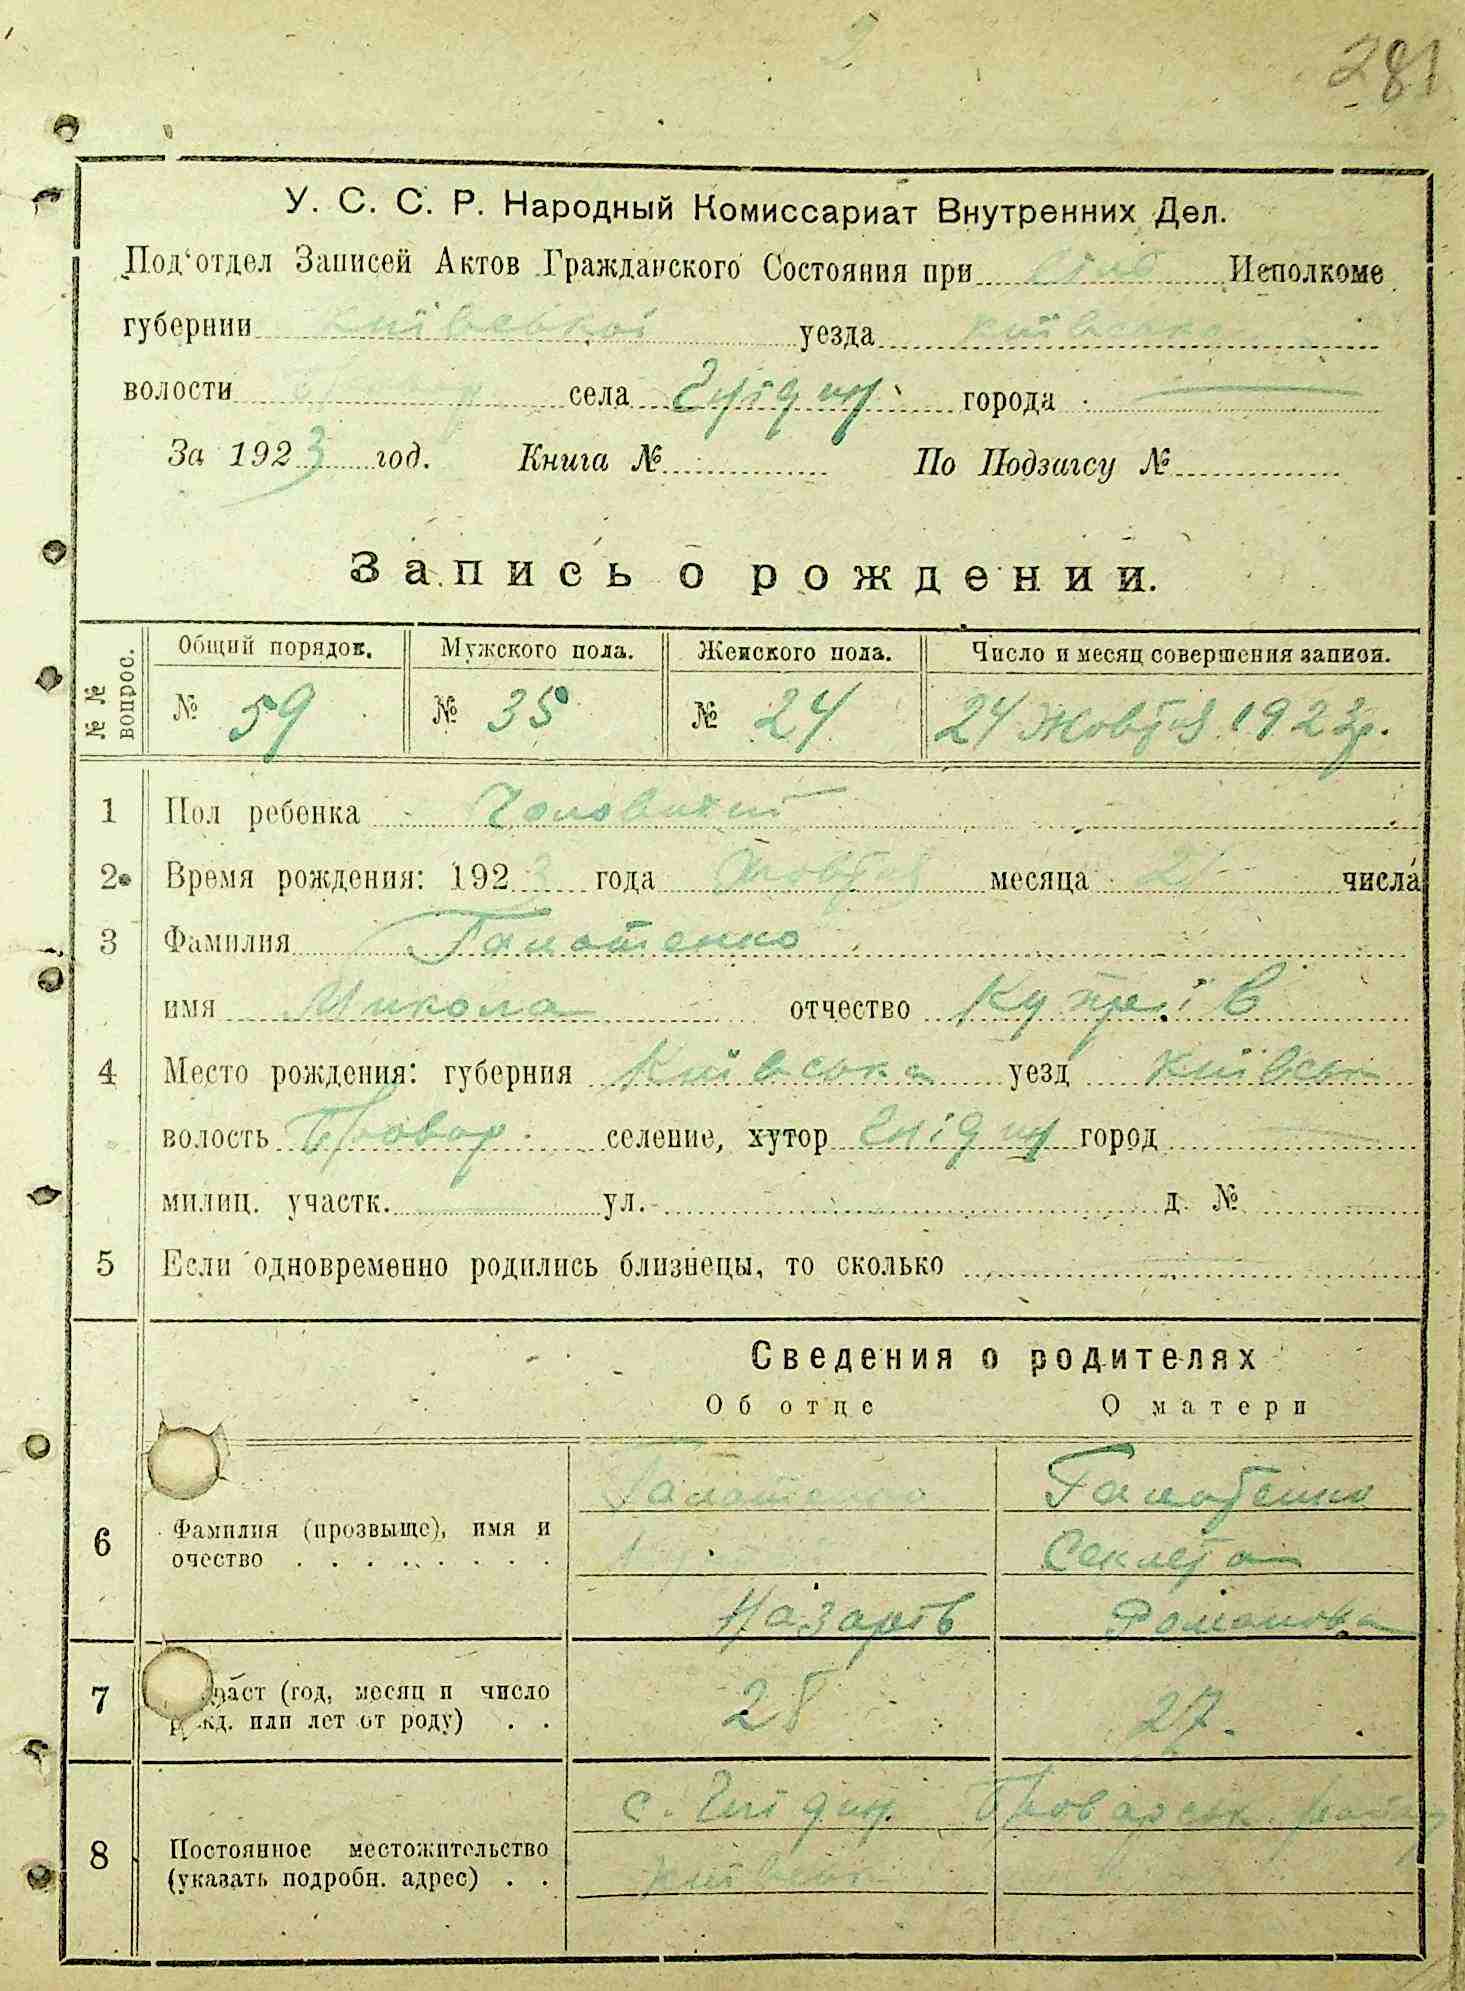 281
У. С. С. Р. Народный Комиссариат Внутренних Дел.
Под‘отдел Записей Актов Гражданского Состояния при Исполкоме
губернии київської уезда київсько
волости Бровар села Гнідин города
За 1923 год. Книга № По Подзагсу №
Запись о рождении.
№ № вопрос. Общий порядок. Мужского пола. Женского пола. Число и месяц совершения записи.
№ 59 № 35 № 24 24 Жовтня 1923 р.
1 Пол ребенка Чоловичий
2 Время рождения: 1923 года Жовтня месяца 21 числа
3 Фамилия
имя Микола отчество Купріїв
4 Место рождения: губерния Київська уезд київськ
волость Бровар. селение, хутор Гнідин город
милиц. участк. ул. д. №
5 Если одновременно родились близнецы, то сколько
Сведения о родителях
Об отце О матери
6 Фамилия (прозвыще), имя и
очество
Секлета
Назарів Романова
7 раст (год, месяц и число 28 27.
рожд. или лет от роду)
8 Постоянное местожительство с. Гнідин Броварськ
(указать подробн. адрес)